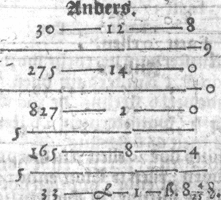 Anders.
30 — 12 — 8
— 9
275 — 14 — 0
— 0
827 — 2 — 0
5 —
165 — 8 — 4
5 —
33 — — 1 — ß. 8 8.